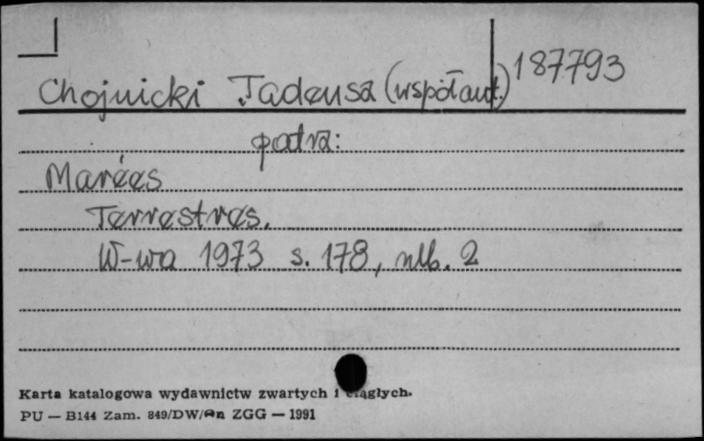 Chojnicki Tadeusz (współaut.) 187793
patrz:
Marées
Terrestres.
W-wa 1973 s. 178, nlb. 2
Karta katalogowa wydawnictw zwartych i ciągłych.
PU — B144 Zam. 849/DW/An ZGG — 1991